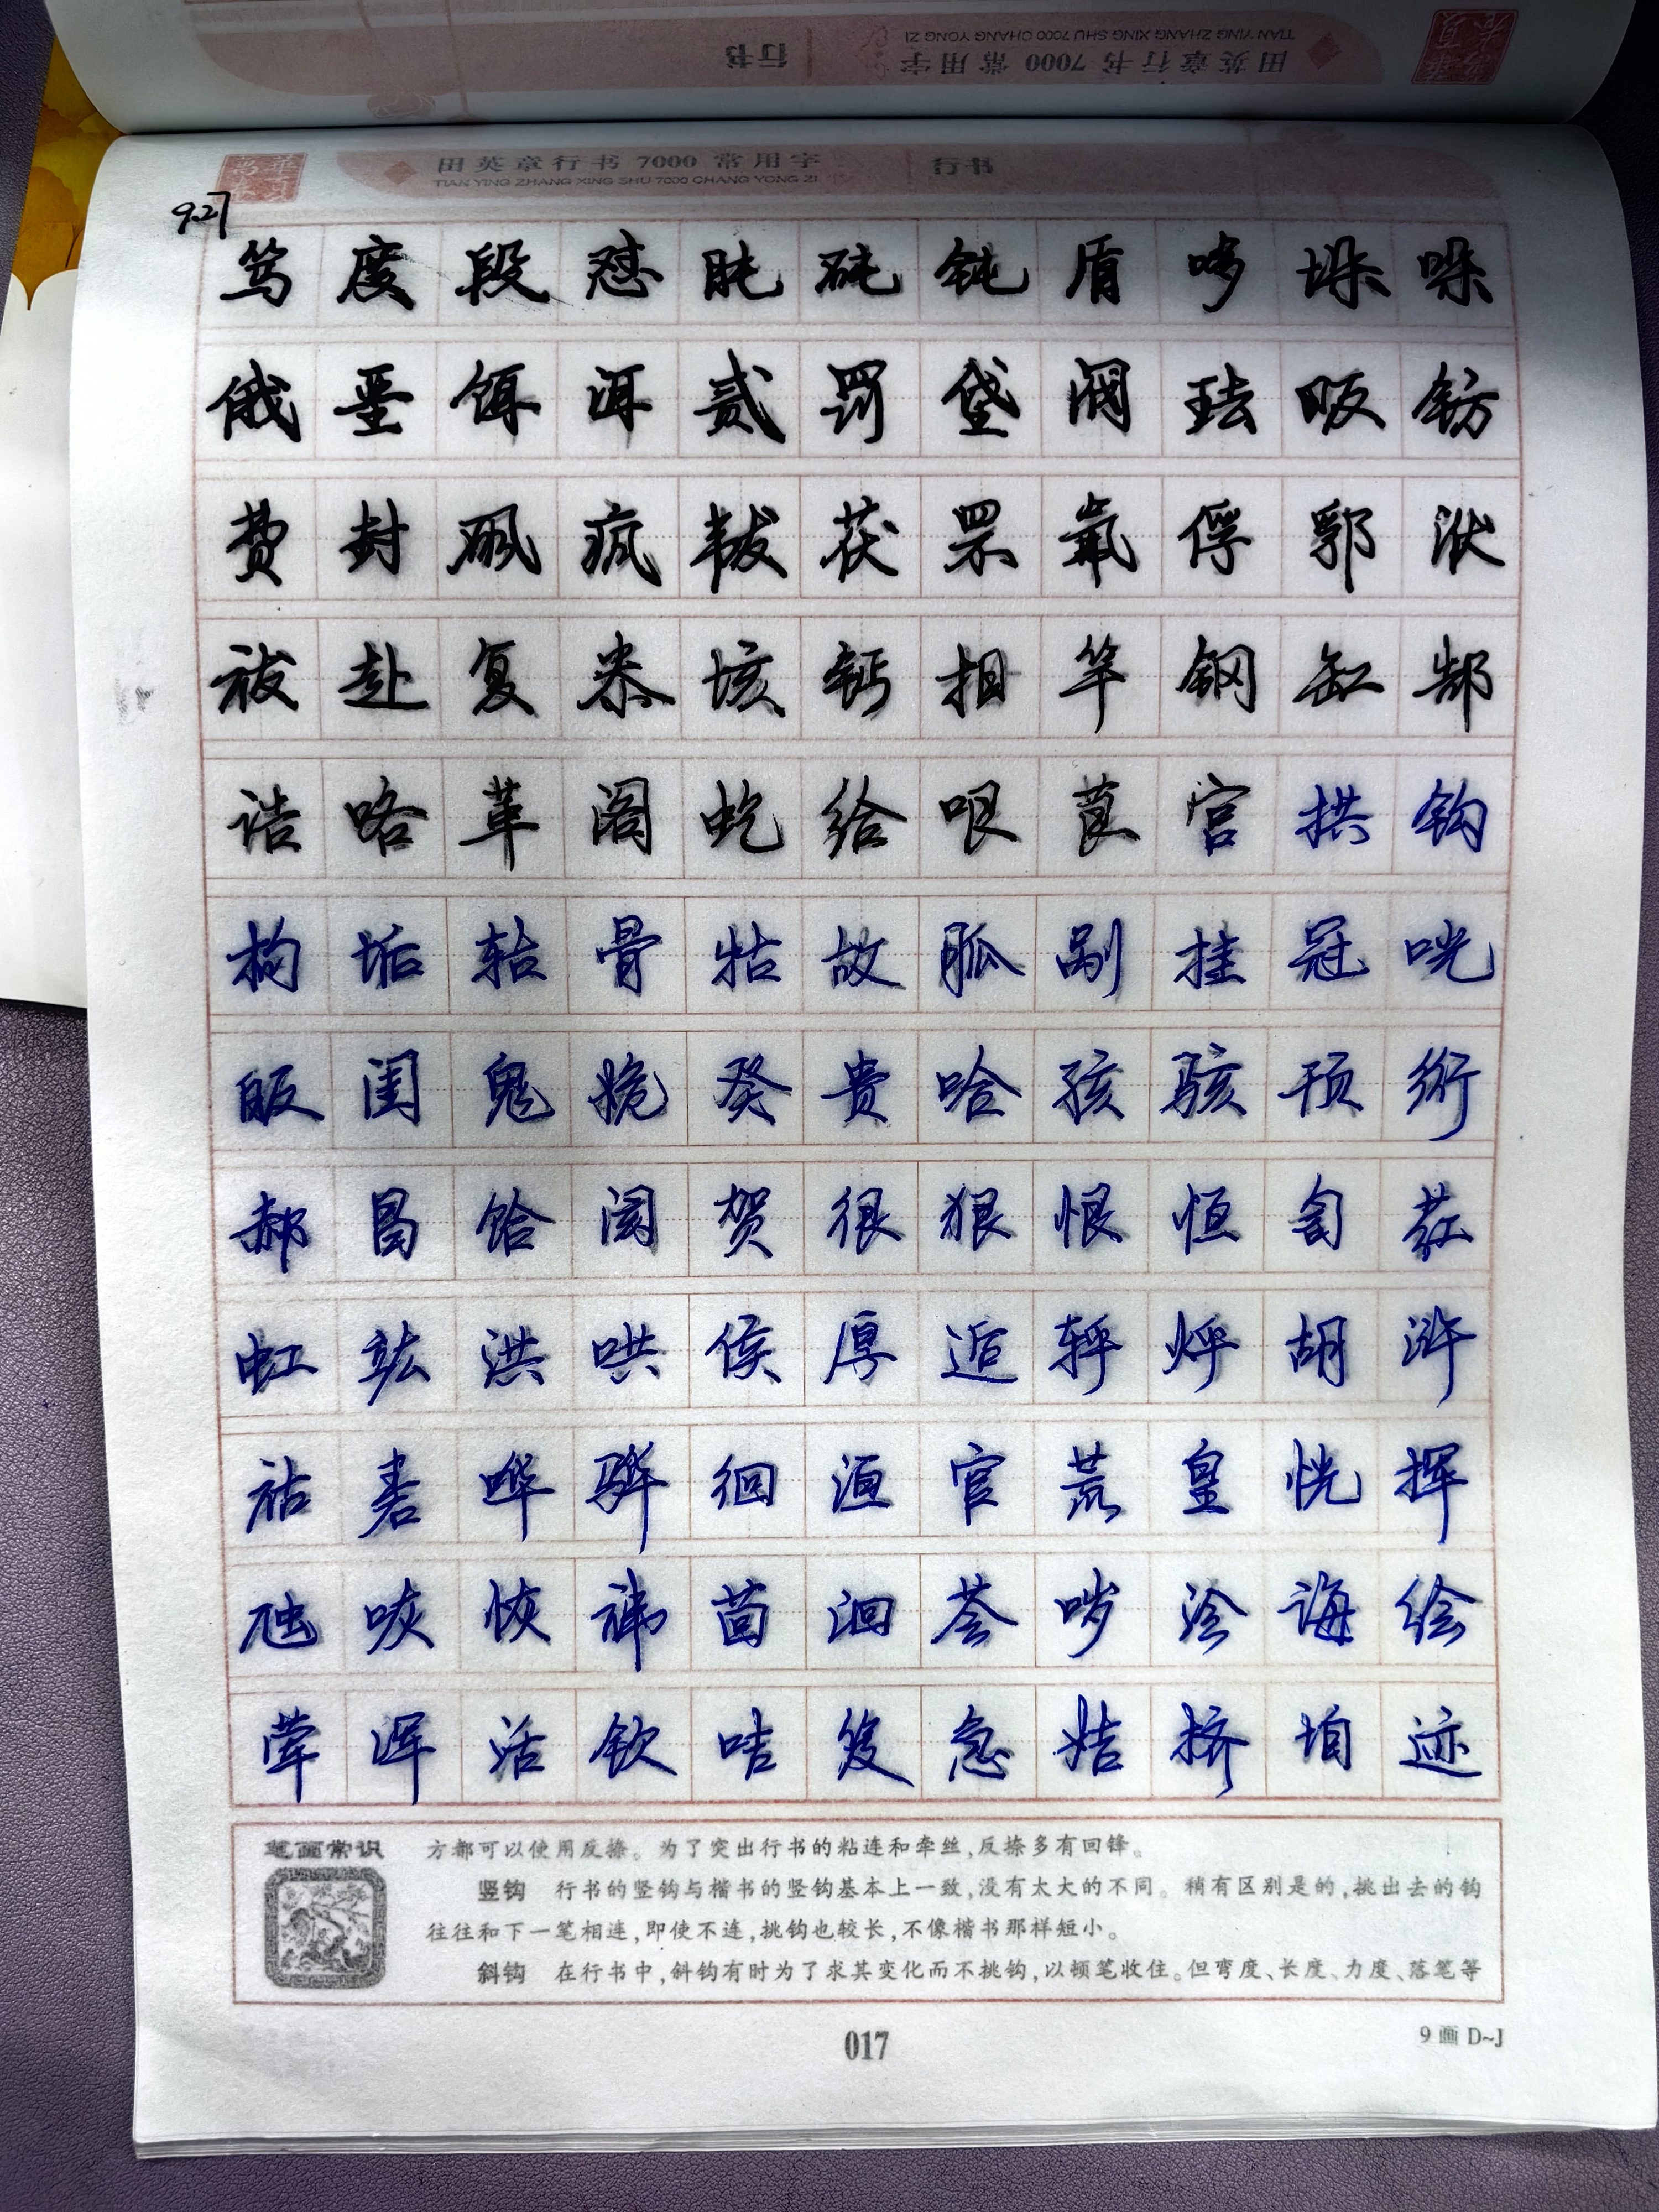 田英章行书 7000 常用字 行书
TIAN YING ZHANG XING SHU 7000 CHANG YONG ZI
田英章行书 7000 常用字 行书
TIAN YING ZHANG XING SHU 7000 CHANG YONG ZI
9.27
笃 度 段 怼 盹 砘 钝 盾 哆 垛 哚
俄 垩 饵 洱 贰 罚 垡 阀 珐 畈 钫
费 封 砜 疯 韨 茯 罘 氟 俘 郛 洑
祓 赴 复 尜 垓 钙 柑 竿 钢 缸 郜
诰 咯 革 阁 虼 给 哏 茛 宫 拱 钩
枸 垢 轱 骨 牯 故 胍 剐 挂 冠 咣
皈 闺 鬼 姽 癸 贵 哈 孩 骇 顸 绗
郝 曷 饸 阂 贺 很 狠 恨 恒 訇 荭
虹 竑 洪 哄 侯 厚 逅 轷 烀 胡 浒
祜 砉 哗 骅 徊 洹 宦 荒 皇 恍 挥
虺 咴 恢 袆 茴 洄 荟 哕 浍 诲 绘
荤 浑 活 钬 咭 笈 急 姞 挤 垍 迹
笔画常识
方都可以使用反捺。为了突出行书的粘连和牵丝,反捺多有回锋。
竖钩 行书的竖钩与楷书的竖钩基本上一致,没有太大的不同。稍有区别是的,挑出去的钩
往往和下一笔相连,即使不连,挑钩也较长,不像楷书那样短小。
斜钩 在行书中,斜钩有时为了求其变化而不挑钩,以顿笔收住。但弯度、长度、力度、落笔等
017
9 画 D~J